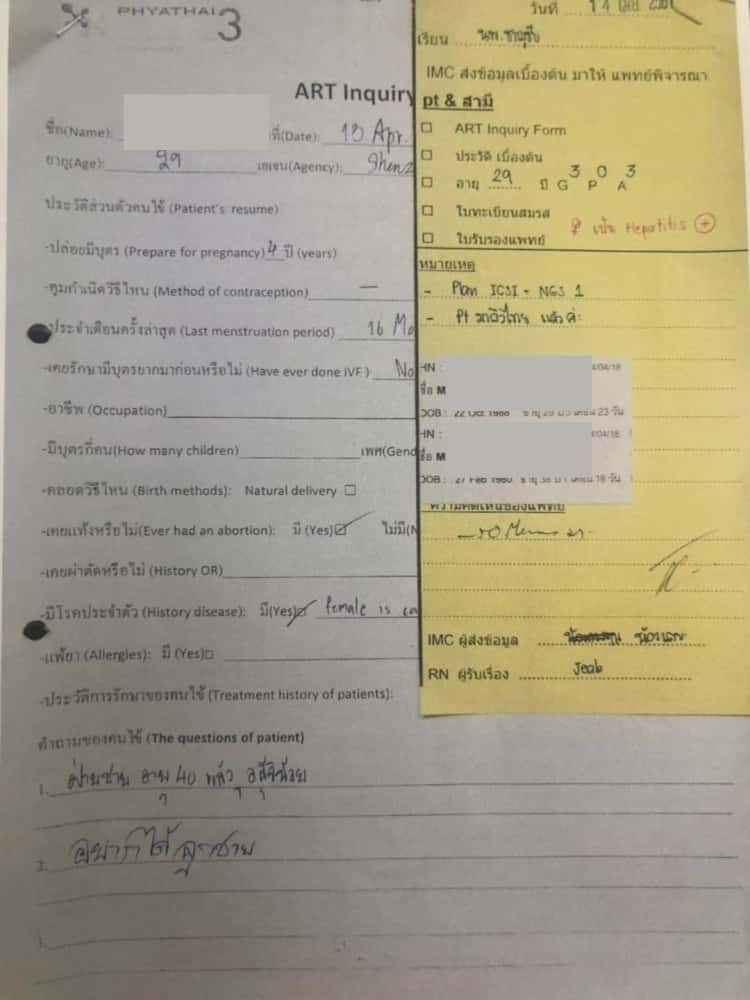 PHYATHAI 3
ART Inquiry
ชื่อ(Name):
ที่(Date): 13 Apr.
อายุ(Age): 29 เอเจน(Agency): Shenz
ประวัติส่วนตัวคนไข้ (Patient's resume)
-ปล่อยมีบุตร (Prepare for pregnancy) 4 ปี (years)
-คุมกำเนิดวิธีไหน (Method of contraception) —
-ประจำเดือนครั้งล่าสุด (Last menstruation period) 16 Ma
-เคยรักษามีบุตรยากมาก่อนหรือไม่ (Have ever done IVF ) No
-อาชีพ (Occupation)
-มีบุตรกี่คน(How many children) เพศ(Gend
-คลอดวิธีไหน (Birth methods): Natural delivery ☐
-เคยแท้งหรือไม่(Ever had an abortion): มี (Yes)☑ ไม่มี(N
-เคยผ่าตัดหรือไม่ (History OR)
-มีโรคประจำตัว (History disease): มี(Yes)☑ female is ca
-แพ้ยา (Allergies): มี (Yes)☐
-ประวัติการรักษาของคนไข้ (Treatment history of patients):
คำถามของคนไข้ (The questions of patient)
1. ฝ่ายชาย อายุ 40 แล้ว อสุจิน้อย
2. อยากได้ลูกชาย
3.
วันที่ 14
เรียน นพ.
IMC ส่งข้อมูลเบื้องต้น มาให้ แพทย์พิจารณา
pt & สามี
☐ ART Inquiry Form
☐ ประวัติ เบื้องต้น
☐ อายุ 29 ปี G 3 P 0 A 3
☐ ใบทะเบียนสมรส
☐ ใบรับรองแพทย์ ♀ เป็น Hepatitis ⊕
หมายเหตุ
- Plan ICSI + NGS 1
- Pt แล้วค่ะ
HN : /04/18
ชื่อ M
DOB : 22 Oct 1988
HN : /04/18
ชื่อ M
DOB : 27 Feb 1980
ความคิดเห็นของแพทย์
IMC ผู้ส่งข้อมูล
RN ผู้รับเรื่อง Jeab